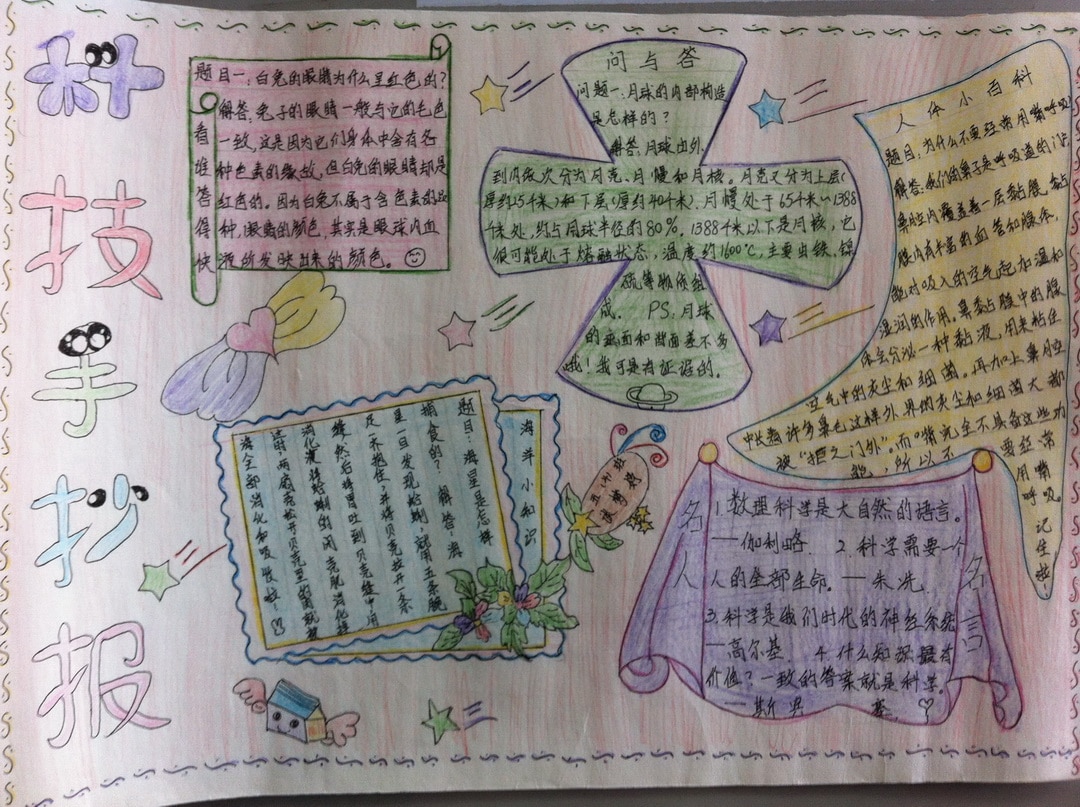 科技手抄报
看谁答得快
题目一:白兔的眼睛为什么呈红色的?
解答:兔子的眼睛一般与它的毛色
一致,这是因为它们身体中含有各
种色素的缘故。但白兔的眼睛却是
红色的。因为白兔不属于含色素的品
种,眼睛的颜色,其实是眼球内血
液所反映出来的颜色。
问与答
问题一:月球的内部构造
是怎样的?
解答:月球由外
到内依次分为月壳、月慢和月核。月壳又分为上层(
厚约25千米)和下层(厚约40千米)。月慢处于65千米~1388
千米处,约占月球半径的80%。1388千米以下是月核,它
很可能处于熔融状态,温度约1600℃,主要由铁、镍
硫等物质组
成。 PS:月球
的正面和背面差不多
哦!我可是有证据的。
人体小百科
题目:为什么不要经常用嘴呼吸
解答:我们的鼻子是呼吸道的门户
鼻腔内覆盖着一层黏膜。黏
膜内有丰富的血管和腺体,
能对吸入的空气起加温和
湿润的作用。鼻黏膜中的腺
体会分泌一种黏液,用来粘住
空气中的灰尘和细菌。再加上鼻腔
中长着许多鼻毛这样外界的灰尘和细菌大都
被“拒之门外”。而口腔完全不具备这些功
能,所以不
要经常
用嘴
呼吸
记住啦
海洋小知识
题目:海星是怎样
捕食的? 解答:海
星一旦发现蛤蜊,就用五条腕
足一齐抱住,并将贝壳拉开一条
缝然后将胃吐到贝壳缝中用
消化液将蛤蜊的闭壳肌消化掉
这时两扇壳敞开贝壳里的肉就被
海全部消化和吸收啦!
名人名言
1.数理科学是大自然的语言。
——伽利略. 2.科学需要一个
人的全部生命。——朱冼.
3.科学是我们时代的神经系统
——高尔基. 4.什么知识最有
价值?一致的答案就是科学。
——斯宾塞